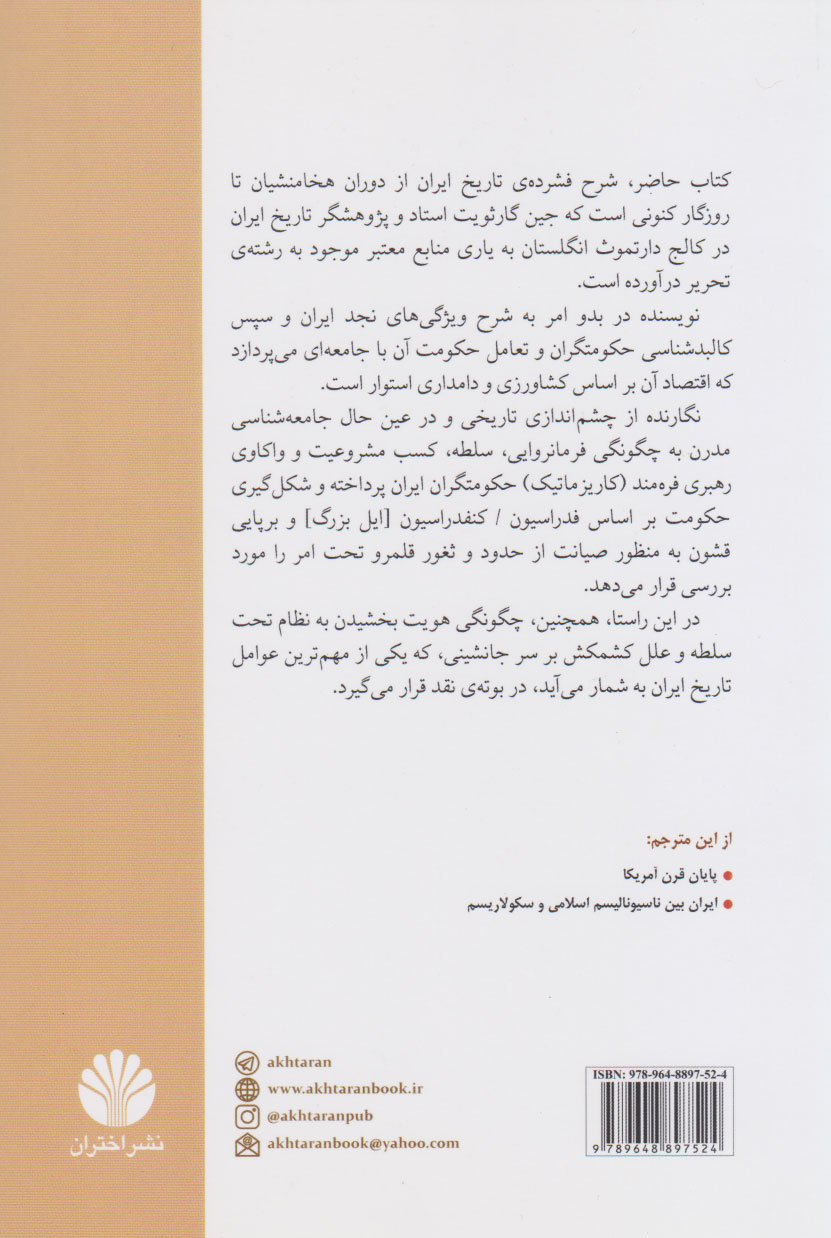 کتاب حاضر، شرح فشرده‌ی تاریخ ایران از دوران هخامنشیان تا
روزگار کنونی است که جین گارثویت استاد و پژوهشگر تاریخ ایران
در کالج دارتموث انگلستان به یاری منابع معتبر موجود به رشته‌ی
تحریر درآورده است.
نویسنده در بدو امر به شرح ویژگی‌های نجد ایران و سپس
کالبدشناسی حکومتگران و تعامل حکومت آن با جامعه‌ای می‌پردازد
که اقتصاد آن بر اساس کشاورزی و دامداری استوار است.
نگارنده از چشم‌اندازی تاریخی و در عین حال جامعه‌شناسی
مدرن به چگونگی فرمانروایی، سلطه، کسب مشروعیت و واکاوی
رهبری فره‌مند (کاریزماتیک) حکومتگران ایران پرداخته و شکل‌گیری
حکومت بر اساس فدراسیون / کنفدراسیون [ایل بزرگ] و برپایی
قشون به منظور صیانت از حدود و ثغور قلمرو تحت امر را مورد
بررسی قرار می‌دهد.
در این راستا، همچنین، چگونگی هویت بخشیدن به نظام تحت
سلطه و علل کشمکش بر سر جانشینی، که یکی از مهم‌ترین عوامل
تاریخ ایران به شمار می‌آید، در بوته‌ی نقد قرار می‌گیرد.
از این مترجم:
● پایان قرن آمریکا
● ایران بین ناسیونالیسم اسلامی و سکولاریسم
akhtaran
www.akhtaranbook.ir
@akhtaranpub
akhtaranbook@yahoo.com
نشر اختران
ISBN: 978-964-8897-52-4
9 789648 897524